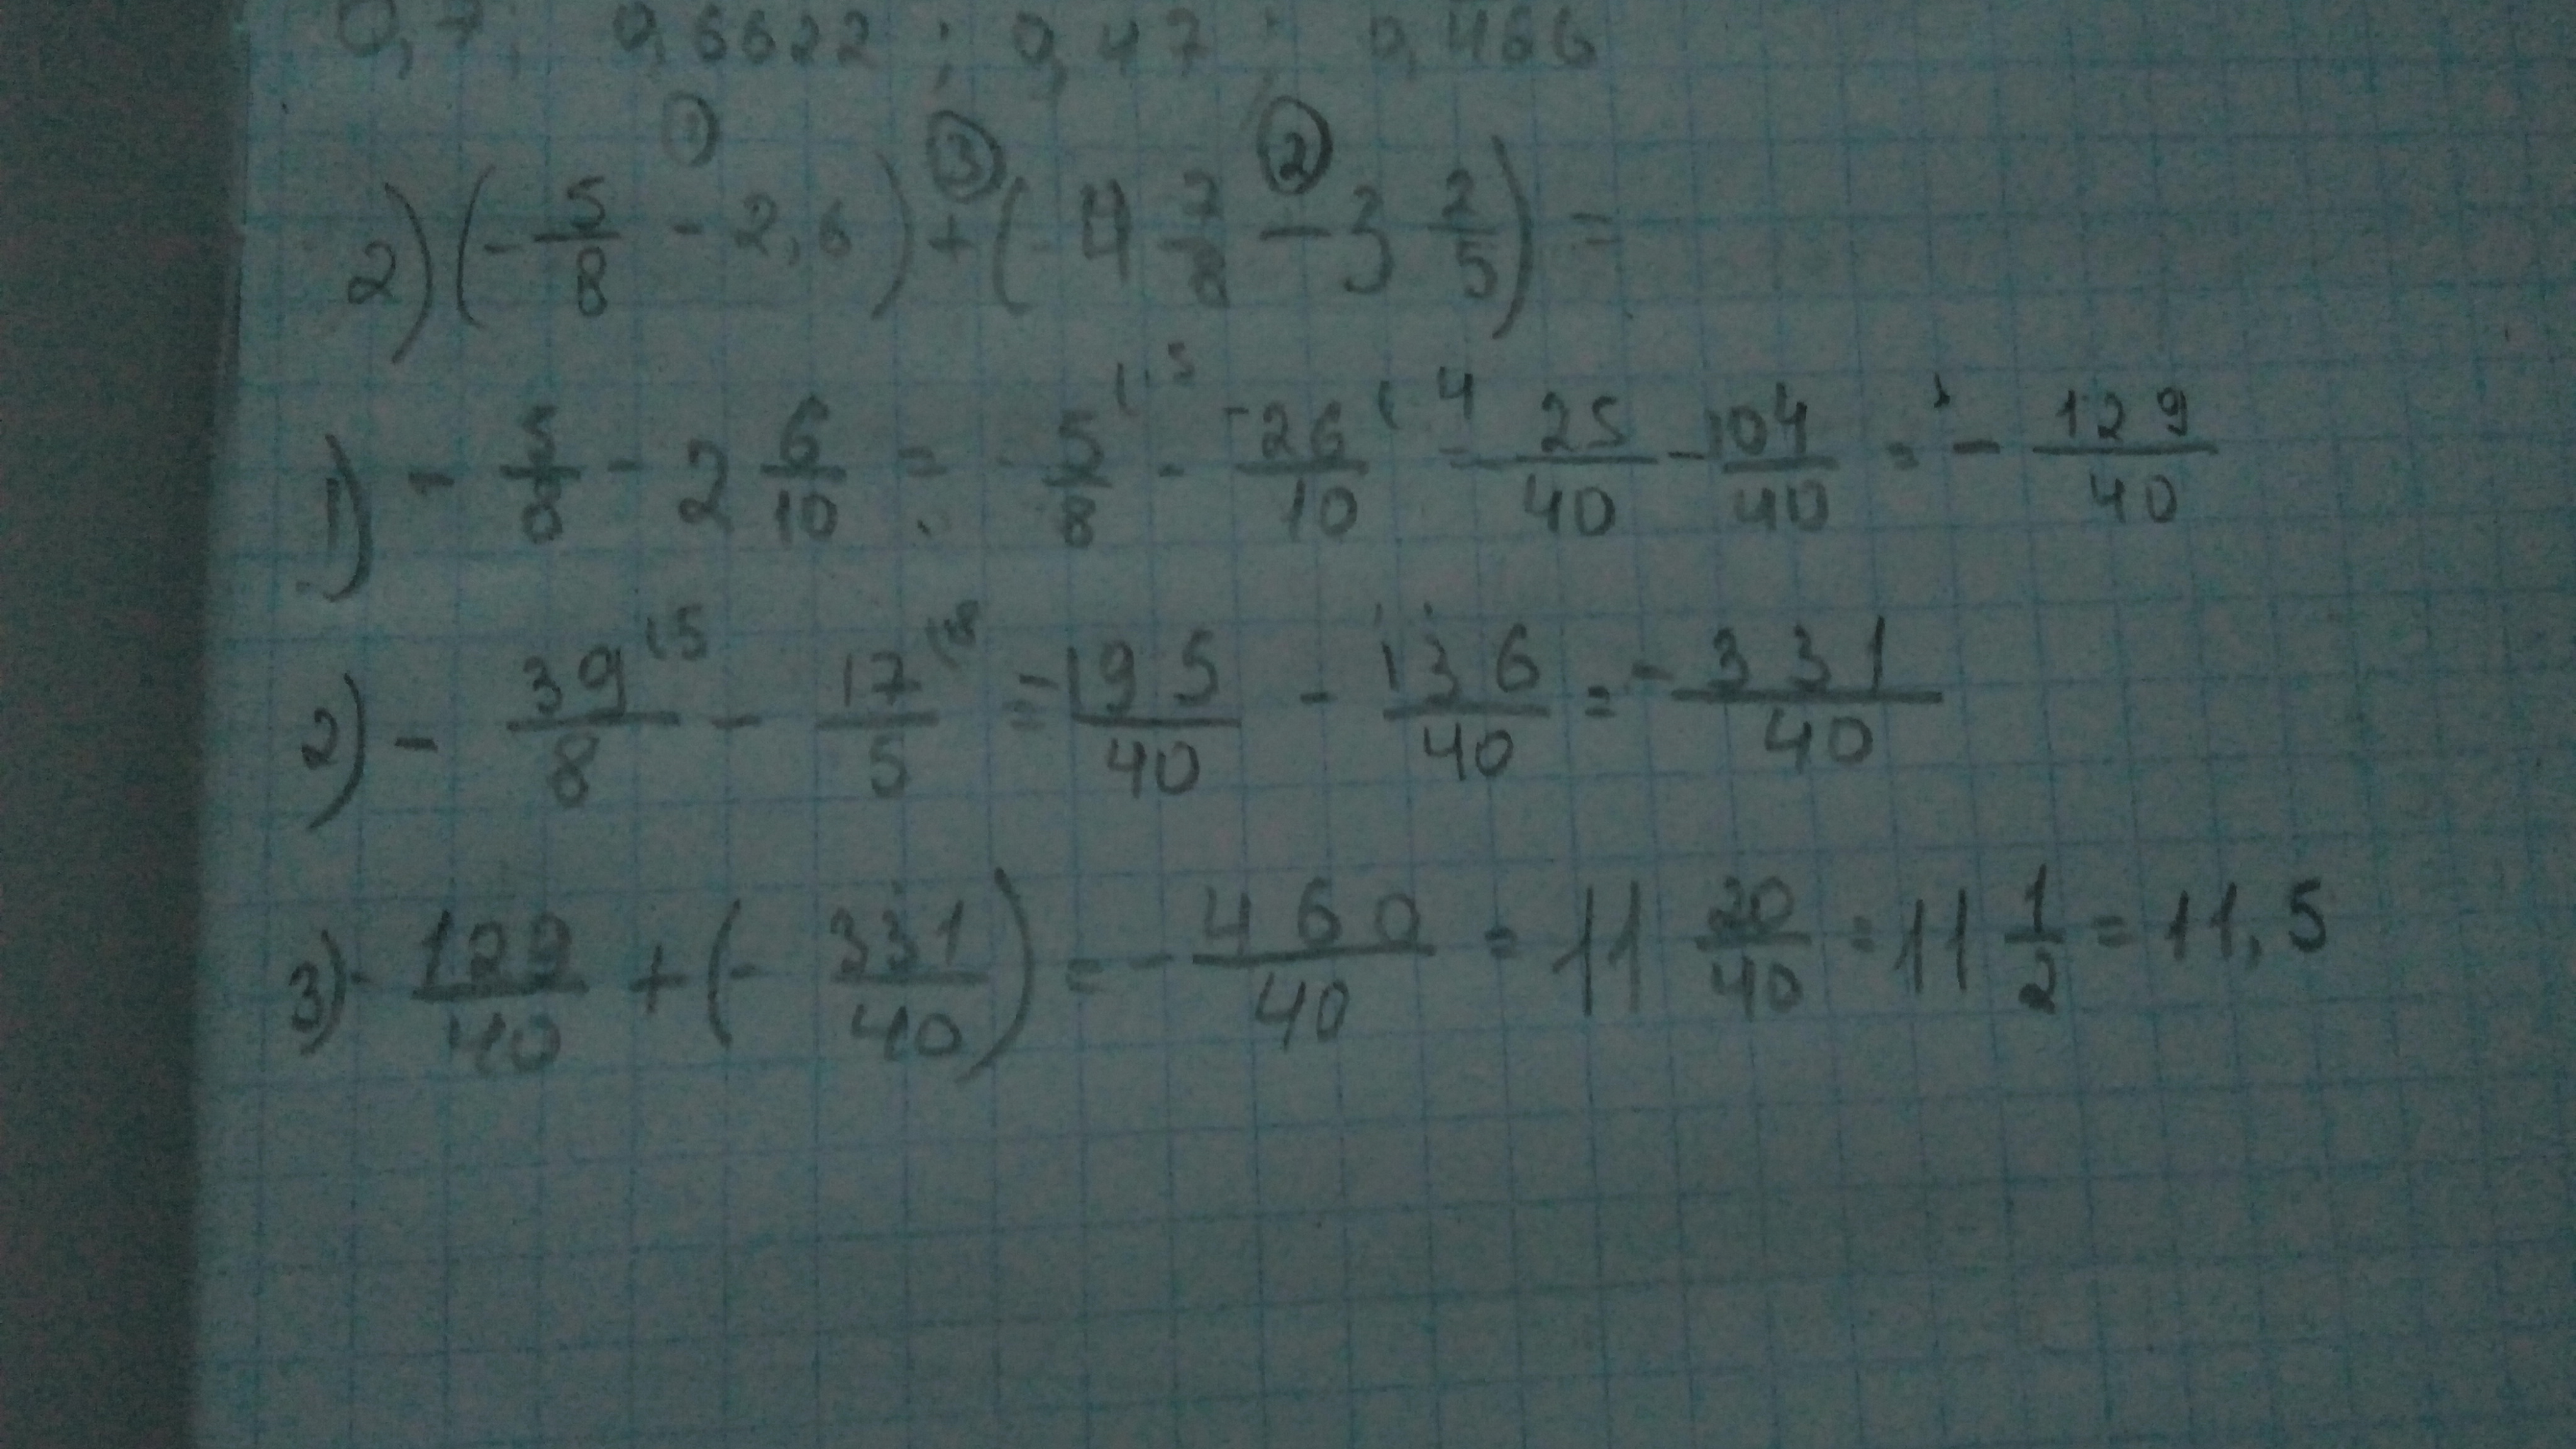 0,7; 0,6622; 0,47; 0,466
① ③ ②
2) (- 5/8 - 2,6) + (- 4 7/8 - 3 2/5) =
1) - 5/8 - 2 6/10 = - 5/8 (·5 - 26/10 (·4 = - 25/40 - 104/40 = - 129/40
2) - 39/8 (·5 - 17/5 (·8 = - 195/40 - 136/40 = - 331/40
3) - 129/40 + (- 331/40) = - 460/40 = 11 20/40 = 11 1/2 = 11,5